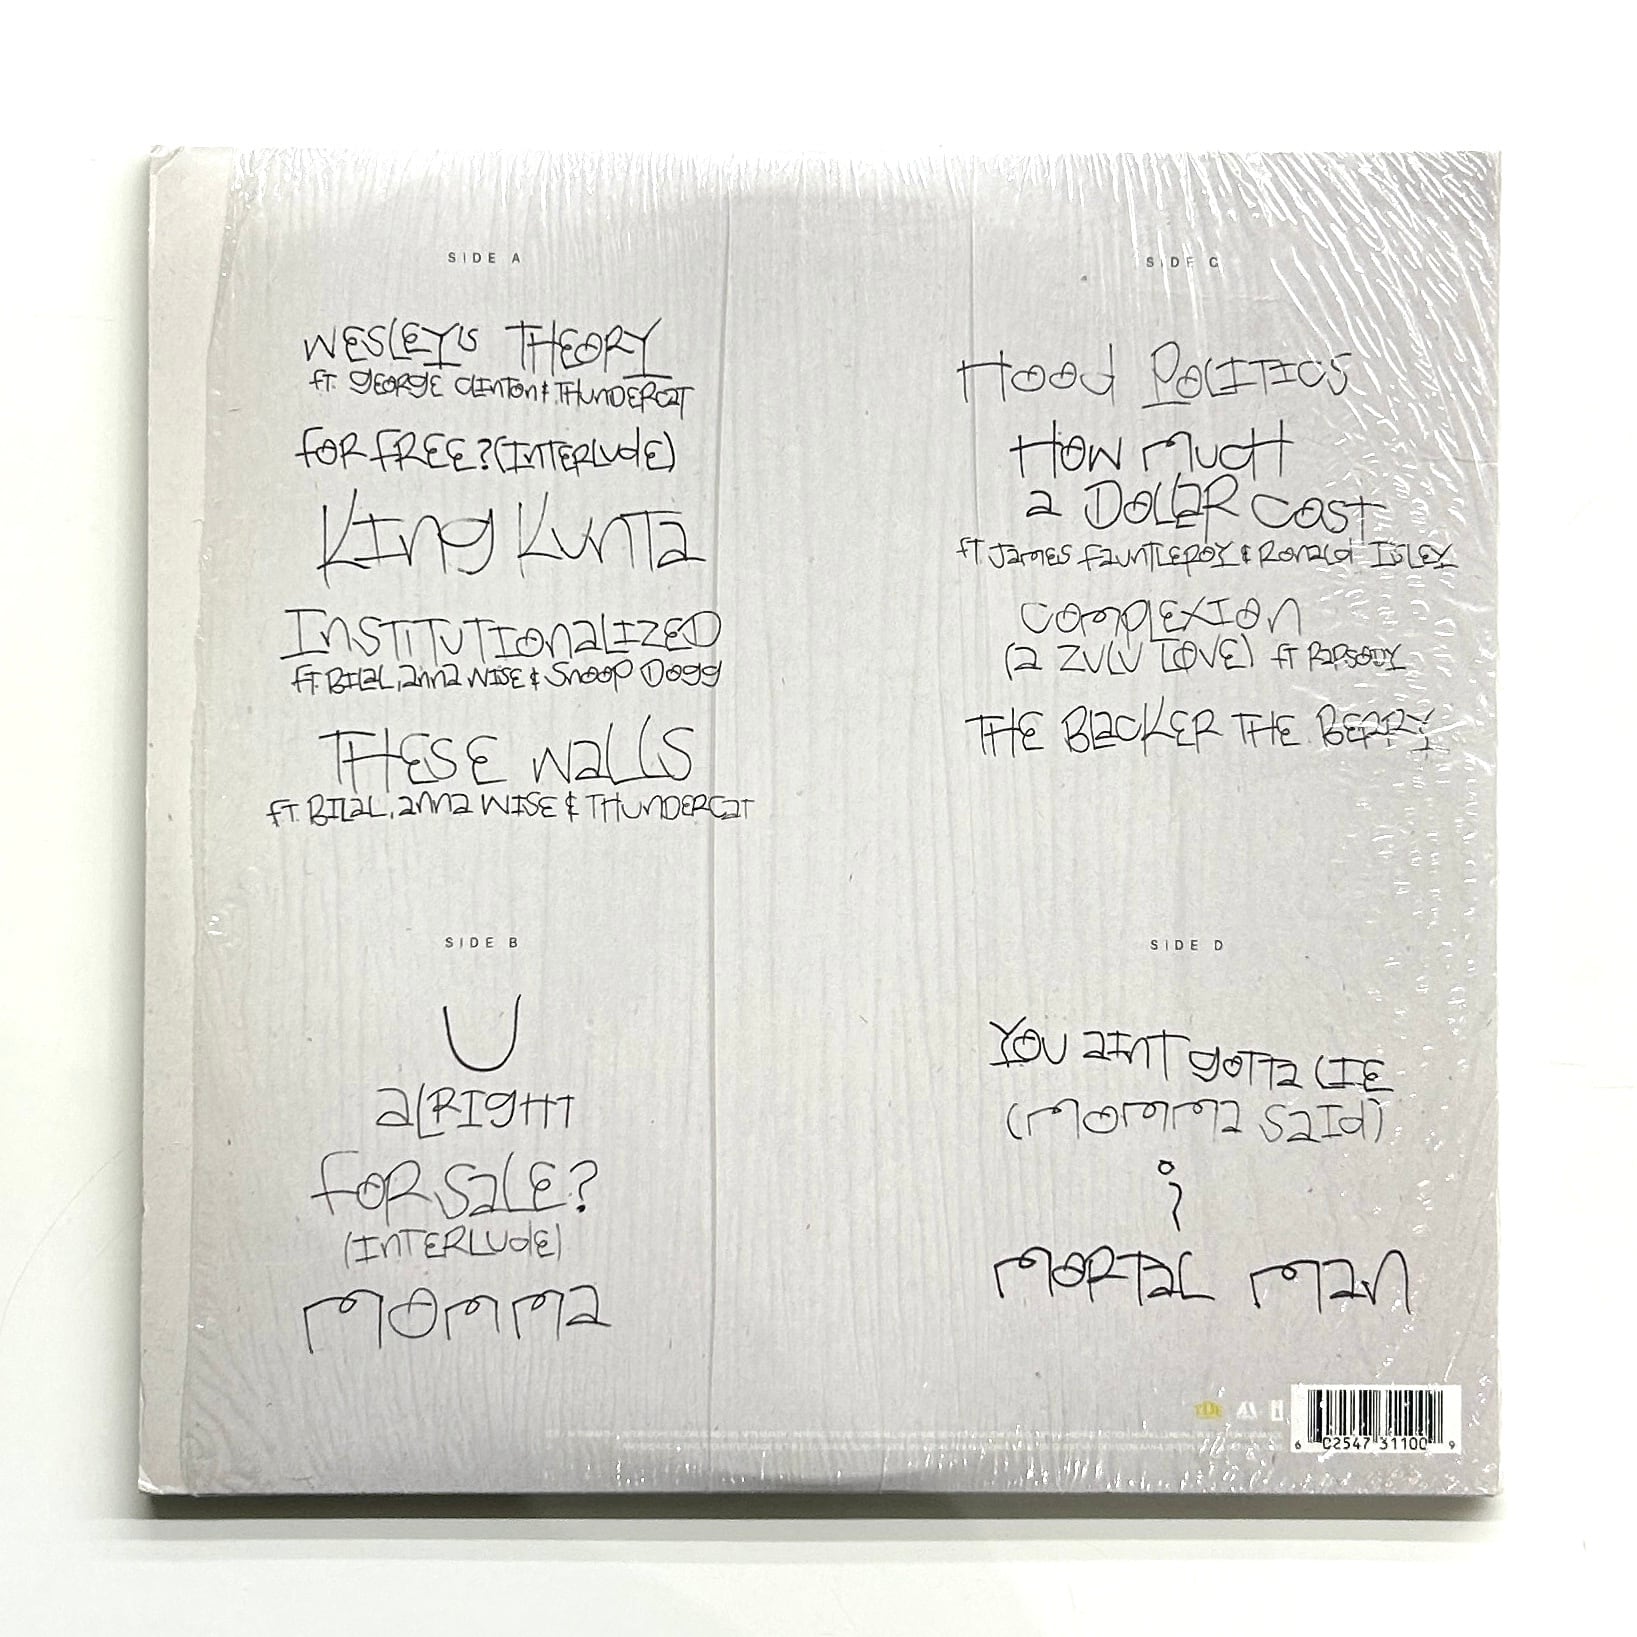 SIDE A
WESLEY'S THEORY
ft. GEORGE CLINTON & THUNDERCAT
FOR FREE? (INTERLUDE)
KING KUNTA
INSTITUTIONALIZED
ft. BILAL, ANNA WISE & SNOOP DOGG
THESE WALLS
ft. BILAL, ANNA WISE & THUNDERCAT
SIDE B
U
ALRIGHT
FOR SALE?
(INTERLUDE)
MOMMA
SIDE C
HOOD POLITICS
HOW MUCH
A DOLLAR COST
ft JAMES FAUNTLEROY & RONALD ISLEY
COMPLEXION
(A ZULU LOVE) ft RAPSODY
THE BLACKER THE BERRY
SIDE D
YOU AINT GOTTA LIE
(MOMMA SAID)
i
MORTAL MAN
TDE
6 02547 31100 9